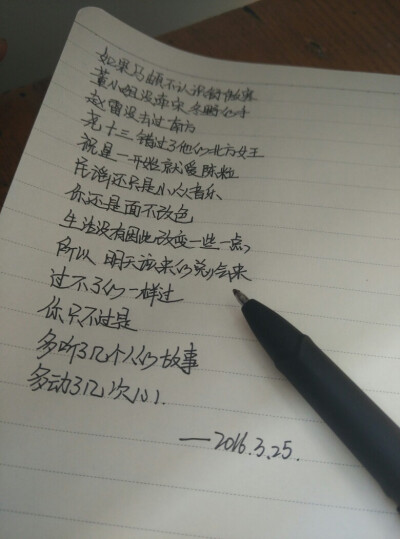 如果马頔不认识舒傲寒
董小姐没牵宋冬野的手
赵雷没去过南方
尧十三错过了他的北方女王
祝星一开始就爱陈粒
民谣还只是小众音乐
你还是面不改色
生活没有因此改变一些一点
所以 明天该来的总会来
过不了的一样过
你只不过是
多听了几个人的故事
多动了几次心.
——2016.3.25.